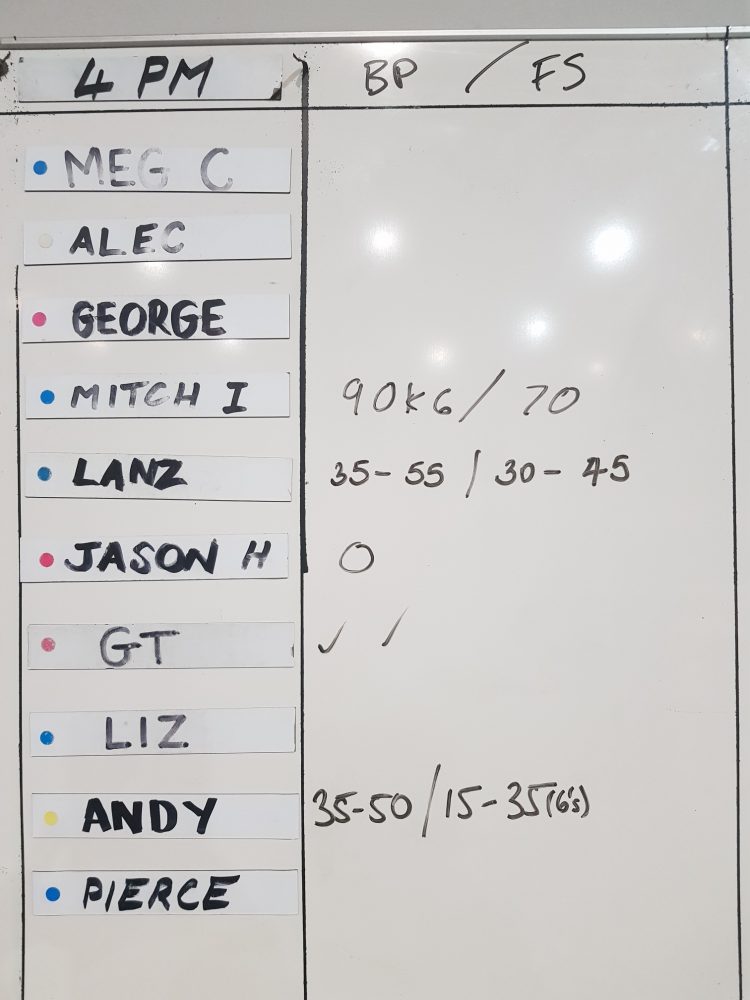 4 PM BP / FS
MEG C
ALEC
GEORGE
MITCH I 90KG / 70
LANZ 35-55 / 30-45
JASON H O
GT ✓ /
LIZ
ANDY 35-50/15-35(6's)
PIERCE